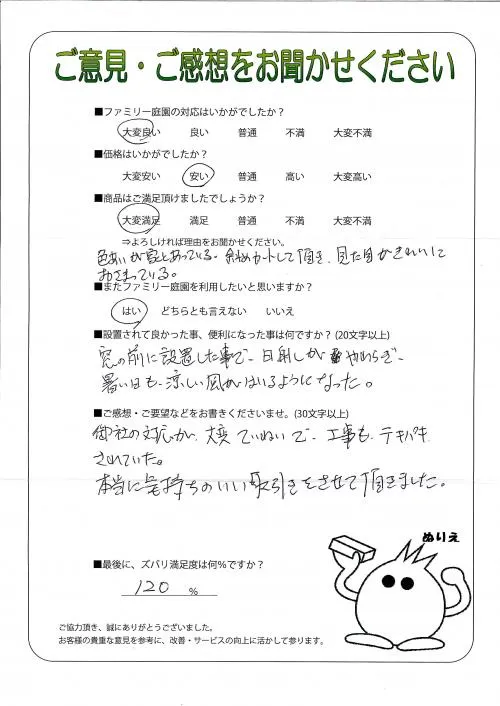 ご意見・ご感想をお聞かせください
■ファミリー庭園の対応はいかがでしたか？
大変良い 良い 普通 不満 大変不満
■価格はいかがでしたか？
大変安い 安い 普通 高い 大変高い
■商品はご満足頂けましたでしょうか？
大変満足 満足 普通 不満 大変不満
⇒よろしければ理由をお聞かせください。
色あいが家とあっている。斜めカットして頂き、見た目がきれいに
おさまっている。
■またファミリー庭園を利用したいと思いますか？
はい どちらとも言えない いいえ
■設置されて良かった事、便利になった事は何ですか？(20文字以上)
窓の前に設置した事で、日射しがやわらぎ、
暑い日も、涼しい風がはいるようになった。
■ご感想・ご要望などをお書きくださいませ。(30文字以上)
御社の対応が、大変ていねいで、工事も、テキパキ
されていた。
本当に気持ちのいい取引きをさせて頂きました。
ぬりえ
■最後に、ズバリ満足度は何％ですか？
120 %
ご協力頂き、誠にありがとうございました。
お客様の貴重な意見を参考に、改善・サービスの向上に活かして参ります。